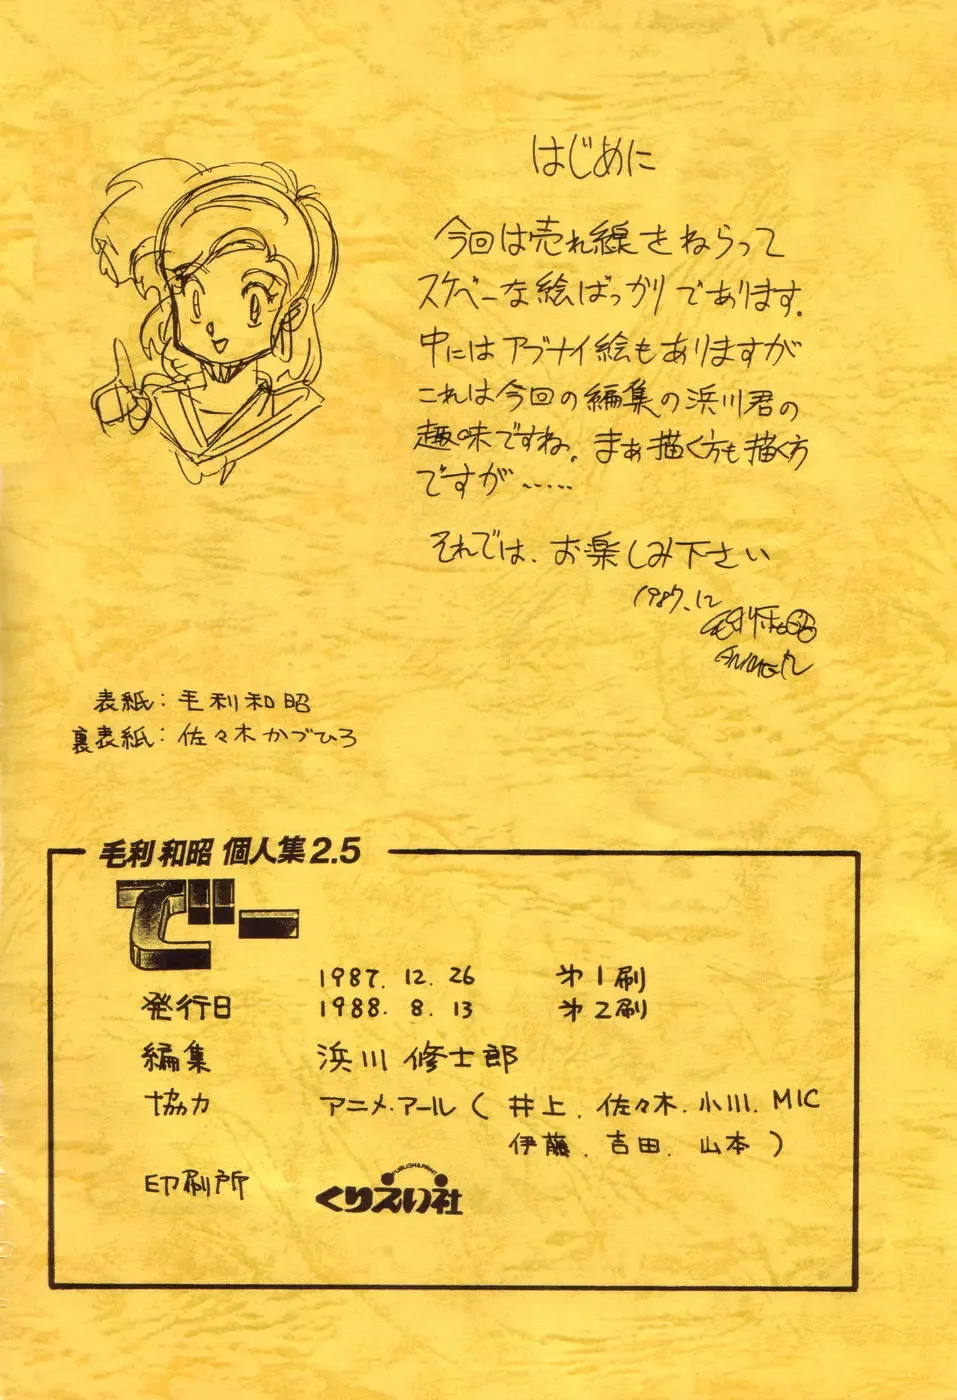 はじめに
今回は売れ線をねらって
スケベーな絵ばっかりであります。
中にはアブナイ絵もありますが
これは今回の編集の浜川君の
趣味ですね。まぁ描く方も描く方
ですが……
それでは、お楽しみ下さい
1987.12
毛利和昭
表紙：毛利和昭
裏表紙：佐々木かづひろ
毛利和昭 個人集2.5
でー
1987. 12. 26 第1刷
発行日 1988. 8. 13 第2刷
編集 浜川修士郎
協力 アニメ・アール（井上．佐々木．小川．MIC
伊藤．吉田．山本）
印刷所 PUBLISH&PRINT くりえい社